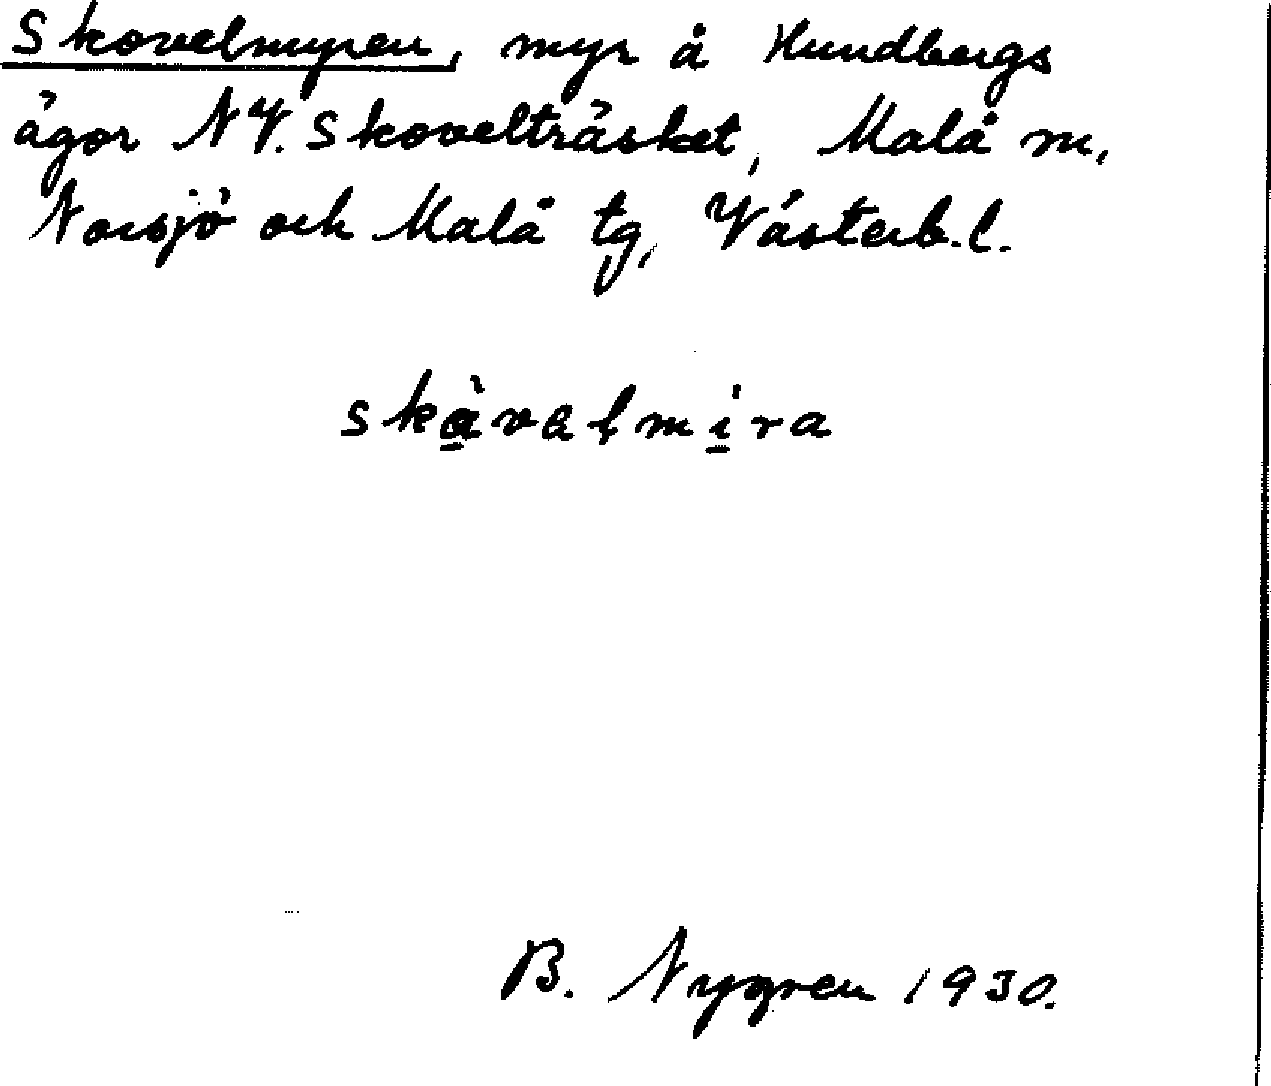 Skovelmyren, myr å Hundbergs
ägor NV. Skovelträsket, Malå m,
Norsjö och Malå tg, Västerb.l.
skàvalmíra
B. Nygren 1930.